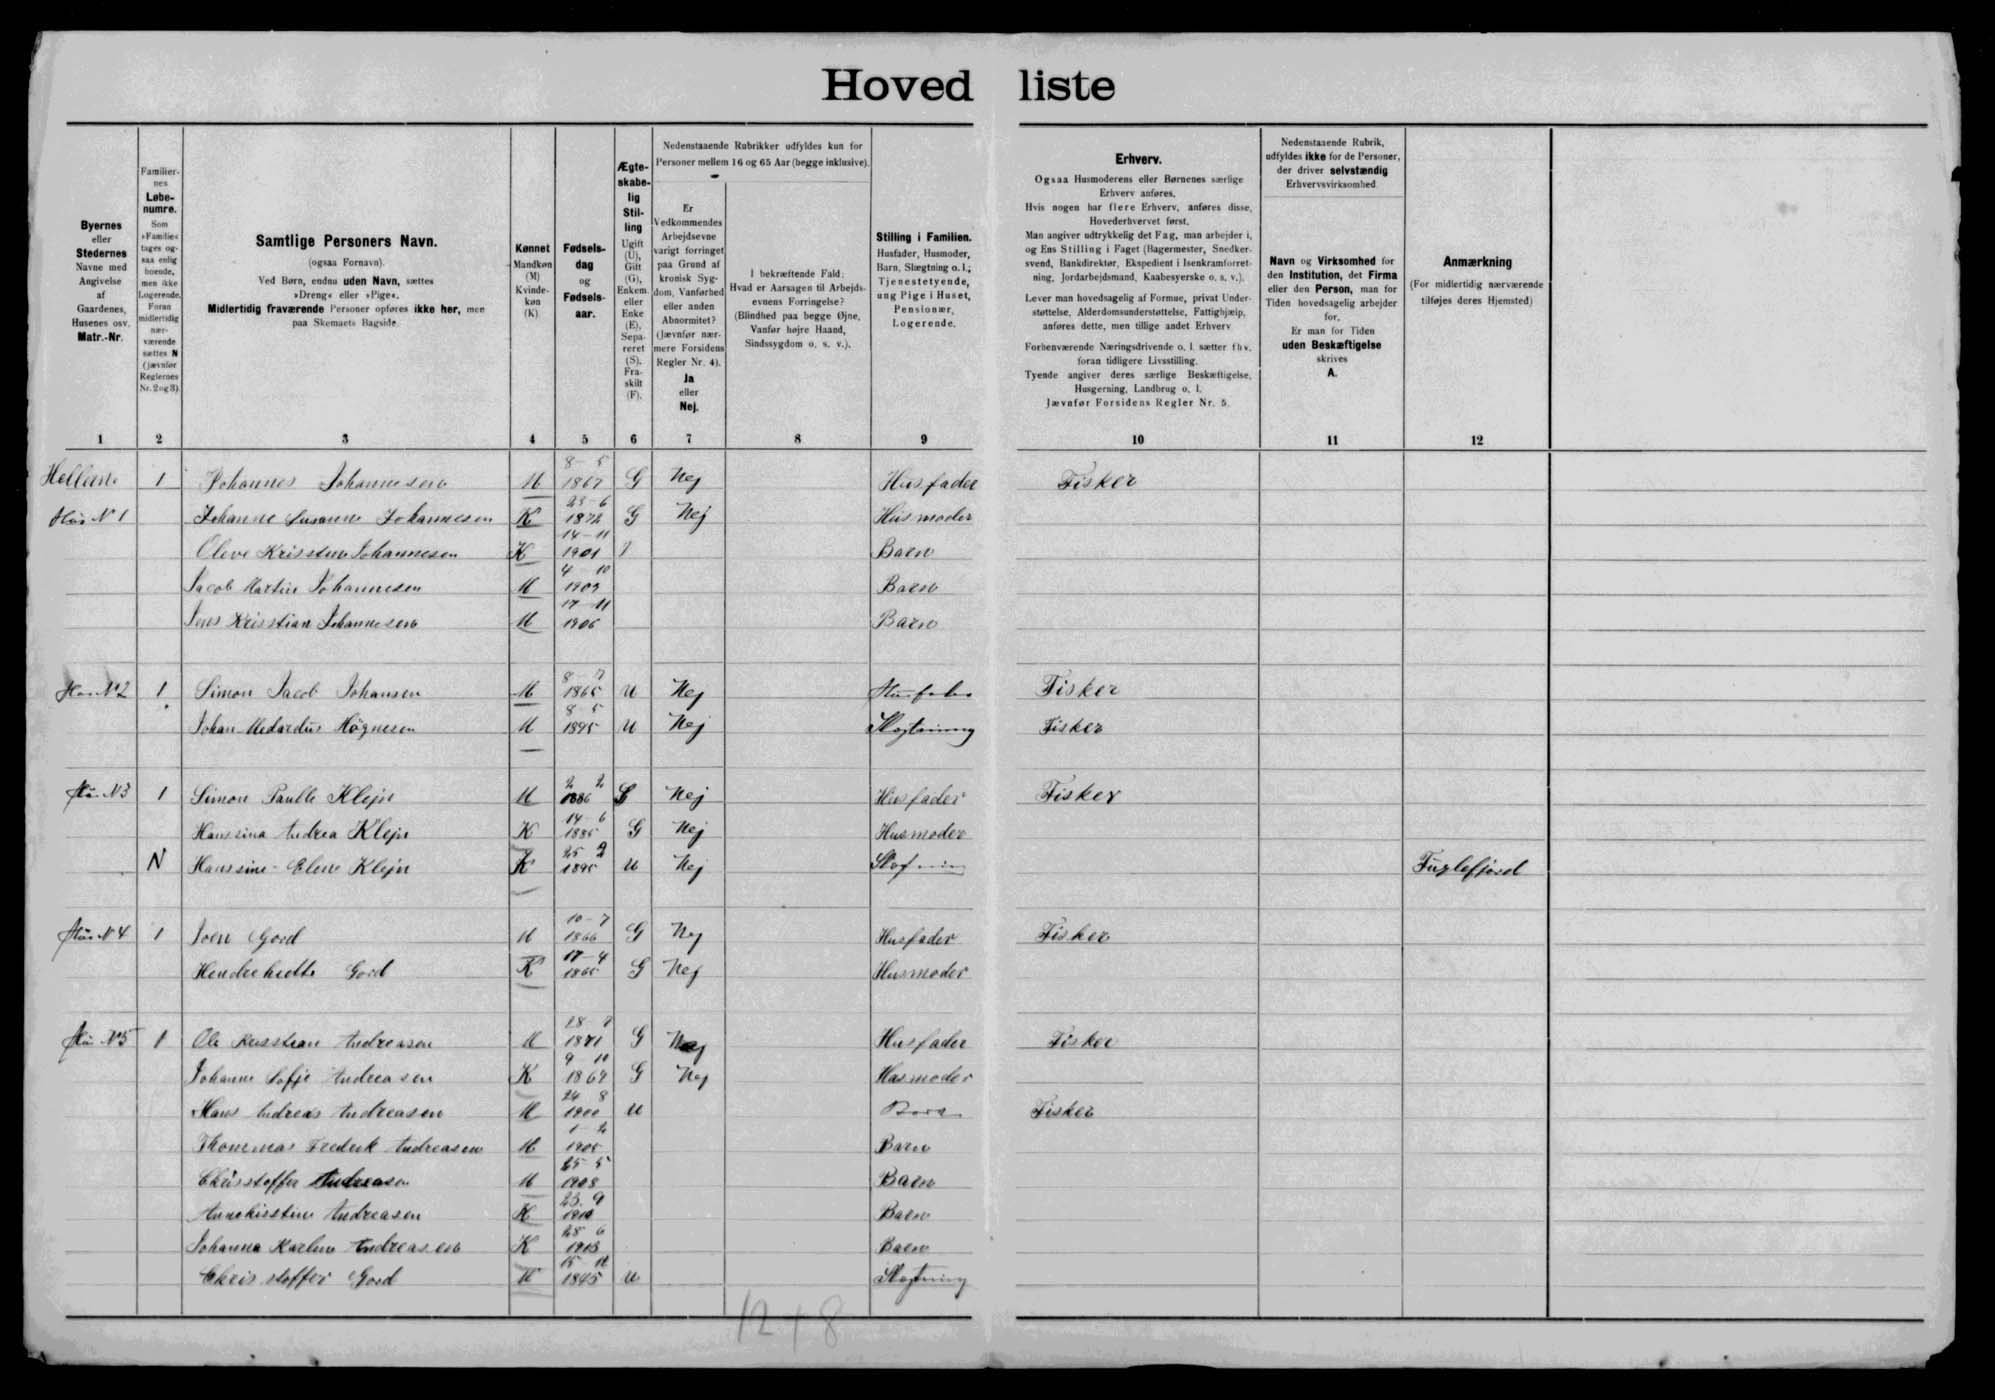 Hovedliste
Byernes eller Stedernes Navne med Angivelse af Gaardenes, Husenes osv. Matr.-Nr.
Familiernes Løbenumre. Som »Familie« tages ogsaa enlig boende, men ikke Logerende. Foran midlertidig nærværende sættes N (jævnfør Reglernes Nr. 2 og 3).
Samtlige Personers Navn.
(ogsaa Fornavn).
Ved Børn, endnu uden Navn, sættes »Dreng« eller »Pige«.
Midlertidig fraværende Personer opføres ikke her, men paa Skemaets Bagside.
Kønnet Mandkøn (M) Kvindekøn (K)
Fødselsdag og Fødselsaar.
Ægteskabelig Stilling Ugift (U), Gift (G), Enkem. eller Enke (E), Separeret (S), Fraskilt (F).
Nedenstaaende Rubrikker udfyldes kun for Personer mellem 16 og 65 Aar (begge inklusive).
Er Vedkommendes Arbejdsevne varigt forringet paa Grund af kronisk Sygdom, Vanførhed eller anden Abnormitet? (Jævnfør nærmere Forsidens Regler Nr. 4). Ja eller Nej.
I bekræftende Fald: Hvad er Aarsagen til Arbejdsevnens Forringelse? (Blindhed paa begge Øjne, Vanfør højre Haand, Sindssygdom o. s. v.).
Stilling i Familien. Husfader, Husmoder, Barn, Slægtning o. l.; Tjenestetyende, ung Pige i Huset, Pensionær, Logerende.
Erhverv.
Ogsaa Husmoderens eller Børnenes særlige Erhverv anføres.
Hvis nogen har flere Erhverv, anføres disse, Hovederhvervet først.
Man angiver udtrykkelig det Fag, man arbejder i, og Ens Stilling i Faget (Bagermester, Snedkersvend, Bankdirektør, Ekspedient i Isenkramforretning, Jordarbejdsmand, Kaabesyerske o. s. v.).
Lever man hovedsagelig af Formue, privat Understøttelse, Alderdomsunderstøttelse, Fattighjælp, anføres dette, men tillige andet Erhverv
Forhenværende Næringsdrivende o. l. sætter fhv. foran tidligere Livsstilling.
Tyende angiver deres særlige Beskæftigelse, Husgerning, Landbrug o. l.
Jævnfør Forsidens Regler Nr. 5.
Nedenstaaende Rubrik, udfyldes ikke for de Personer, der driver selvstændig Erhvervsvirksomhed.
Navn og Virksomhed for den Institution, det Firma eller den Person, man for Tiden hovedsagelig arbejder for.
Er man for Tiden uden Beskæftigelse skrives A.
Anmærkning
(For midlertidig nærværende tilføjes deres Hjemsted)
1 2 3 4 5 6 7 8 9 10 11 12
1 Johannes Johannesen M 8-5 1867 G Nej Husfader Fisker
Hus N 1 Johanne Susanne Johannesen K 23-6 1872 G Nej Husmoder
Oleve Johannesen K 14-11 1901 Barn
Jacob Martin Johannesen M 4-10 1903 Barn
Jens Krisstian Johannesen M 17-11 1906 Barn
Hus N 2 1 Simon Jacob Johansen M 8-7 1865 U Nej Fisker
Johan Medardus Høgnesen M 8-5 1895 U Nej Slægtning Fisker
Hus N 3 1 Simon Klejn M 2 2 1886 G Nej Husfader Fisker
Hanssina Andrea Klejn K 14-6 1885 G Nej Husmoder
N Hanssine Elene Klejn K 25 2 1895 U Nej Fuglefjord
Hus N 4 1 Joen Gord M 10-7 1866 G Nej Husfader Fisker
Gord K 17-4 1865 G Nej Husmoder
Hus N 5 1 Ole Krisstian Andreasen M 28-7 1871 G Nej Husfader Fisker
Johanne Sofje Andreasen K 9-10 1869 G Nej Husmoder
Hans Andreas Andreasen M 24 8 1900 U Barn Fisker
Thommas Frederik Andreasen M 1-2 1905 Barn
Chrisstoffer Andreasen M 25 5 1908 Barn
Annekisstine Andreasen K 23 9 1910 Barn
Johanna Karline Andreasen K 28 6 1913 Barn
Chrisstoffer Gord M 1845 U Slægtning
12 + 8